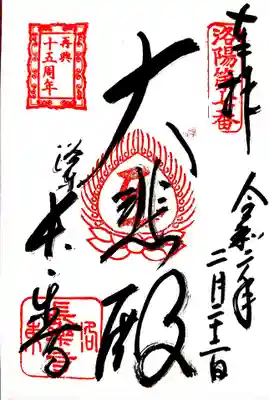 奉拝
洛陽第七番
令和二年
二月二十二日
大悲殿
再興
十五周年
洛東
長楽寺